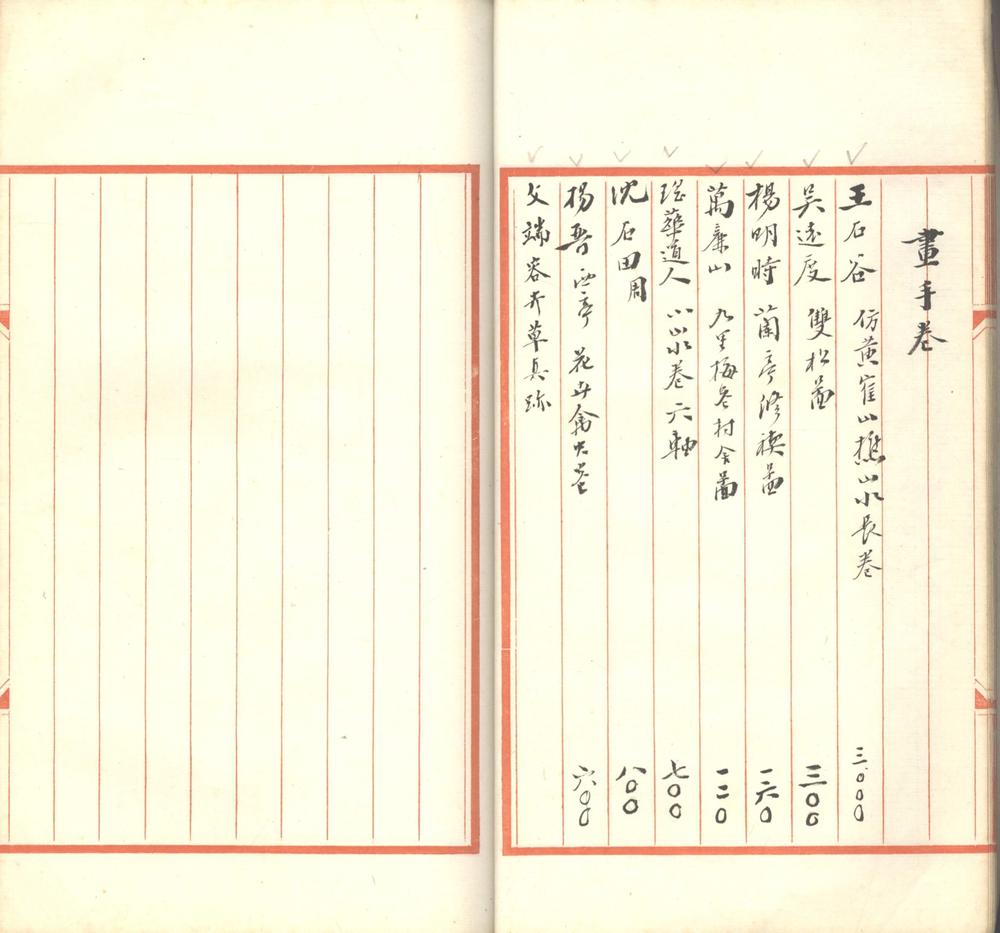 畫手卷
王石谷 仿黄崔山樵山水長卷 三〇〇〇
吴遠度 雙松啚 三〇〇
楊明時 蘭亭修禊啚 一六〇
萬廉山 九里梅花村舍啚 一二〇
瑤華道人 小山水卷六軸 七〇〇
沈石田周 八〇〇
楊晉西亭 花卉禽虫卷 六〇〇
文端容卉草真跡